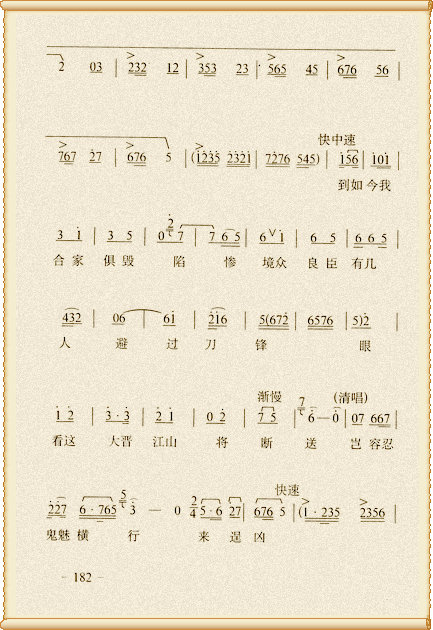 2 03 | 232 12 | 353 23 | 565 45 | 676 56 |
767 27 | 676 5 | (1235 2321 | 7276 545) | 156 | 101 |
快中速
到如 今我
3 1 | 3 5 | 0 2 7 | 7 6 5 | 6 ∨ 1 | 6 5 | 6 6 5 |
合 家 俱 毁 陷 惨 境众 良 臣 有几
432 | 06 | 61 | 216 | 5(672 | 6576 | 5)2 |
人 避 过 刀 锋 眼
渐慢 (清唱)
1 2 | 3·3 | 2 1 | 0 2 | 7 5 | 7 6 — 0 | 07 667 |
看这 大晋 江山 将 断 送 岂 容忍
快速
227 6·765 5 3 — 0 | 2/4 5·6 27 | 676 5 | (1·235 2356 |
鬼魅 横 行 来 逞 凶
- 182 -